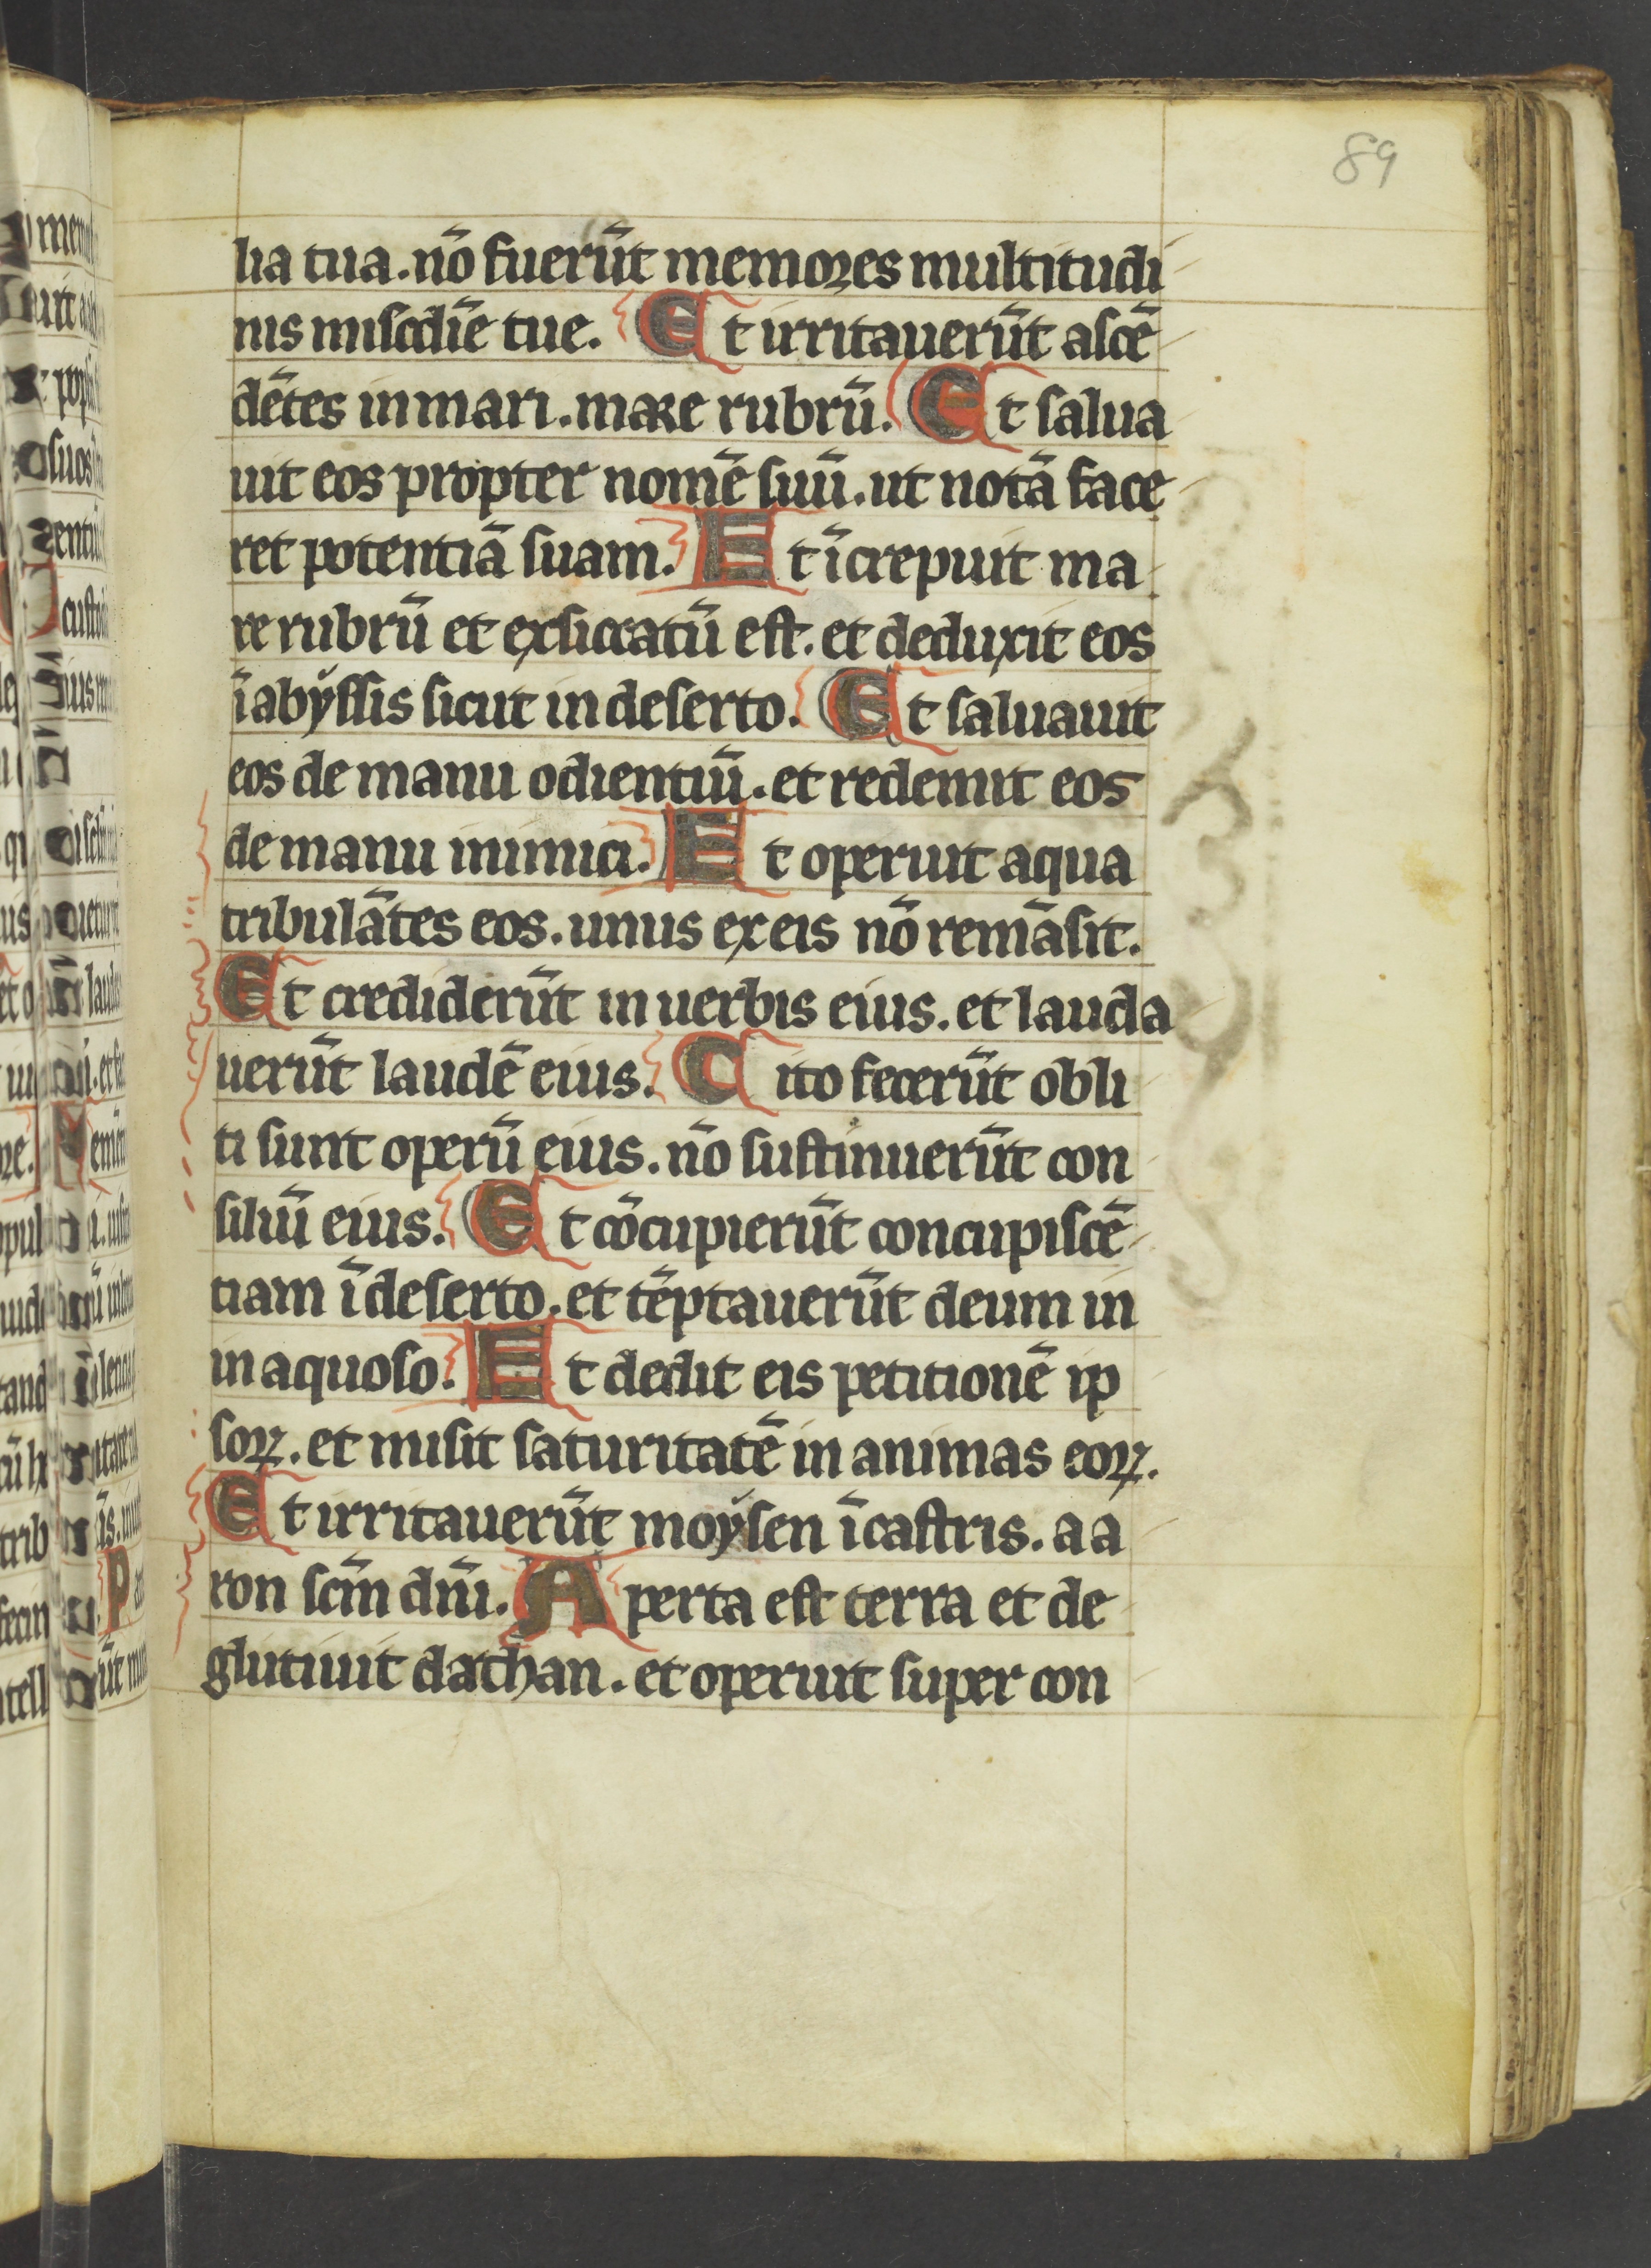 89
lia tua. nō fuerūt memores multitudi
nis miscdīe tue. Et irritauerūt ascē
dētes in mari. mare rubrū. Et salua
uit eos propter nomē suū. ut notā face
ret potentiā suam. Et īcrepuit ma
re rubrū et exsiccatū est. et deduxit eos
ī abyssis sicut in deserto. Et saluauit
eos de manu odientiū. et redemit eos
de manu inimici. Et operuit aqua
tribulātes eos. unus ex eis nō remāsit.
Et crediderūt in uerbis eius. et lauda
uerūt laudē eius. Cito fecerūt obli
ti sunt operū eius. nō sustinuerūt con
siliū eius. Et cōcupierūt concupiscē
tiam ī deserto. et tēptauerūt deum in
in aquoso. Et dedit eis petitionē ip
soꝝ. et misit saturitatē in animas eoꝝ.
Et irritauerūt moysen ī castris. aa
ron scm̄ dnī. Aperta est terra et de
glutiuit dathan. et operuit super con